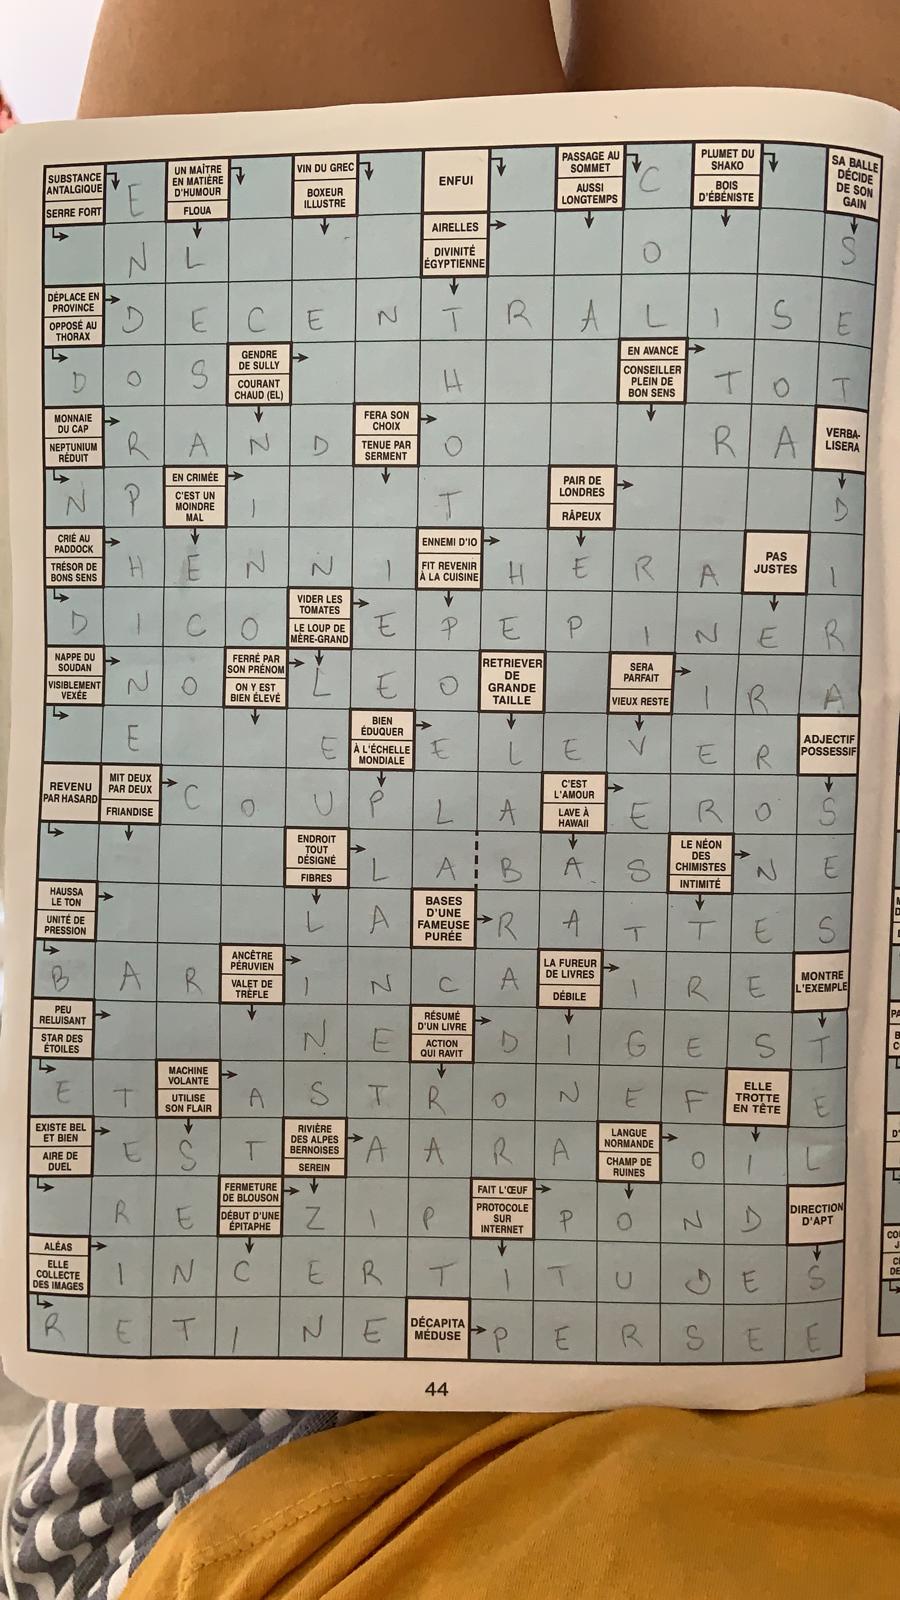 SUBSTANCE ANTALGIQUE
SERRE FORT
E
UN MAÎTRE EN MATIÈRE D'HUMOUR
FLOUA
VIN DU GREC
BOXEUR ILLUSTRE
ENFUI
PASSAGE AU SOMMET
AUSSI LONGTEMPS
C
PLUMET DU SHAKO
BOIS D'ÉBÉNISTE
SA BALLE DÉCIDE DE SON GAIN
N L
AIRELLES
DIVINITÉ ÉGYPTIENNE
O S
DÉPLACE EN PROVINCE
OPPOSÉ AU THORAX
D E C E N T R A L I S E
D O S
GENDRE DE SULLY
COURANT CHAUD (EL)
H
EN AVANCE
CONSEILLER PLEIN DE BON SENS
T O T
MONNAIE DU CAP
NEPTUNIUM RÉDUIT
R A N D
FERA SON CHOIX
TENUE PAR SERMENT
O R A
VERBA-LISERA
N P
EN CRIMÉE
C'EST UN MOINDRE MAL
I T
PAIR DE LONDRES
RÂPEUX
D
CRIÉ AU PADDOCK
TRÉSOR DE BONS SENS
H E N N I
ENNEMI D'IO
FIT REVENIR À LA CUISINE
H E R A
PAS JUSTES
I
D I C O
VIDER LES TOMATES
LE LOUP DE MÈRE-GRAND
E P E P I N E R
NAPPE DU SOUDAN
VISIBLEMENT VEXÉE
N O
FERRÉ PAR SON PRÉNOM
ON Y EST BIEN ÉLEVÉ
L E O
RETRIEVER DE GRANDE TAILLE
SERA PARFAIT
VIEUX RESTE
I R A
E E
BIEN ÉDUQUER
À L'ÉCHELLE MONDIALE
E L E V E R
ADJECTIF POSSESSIF
REVENU PAR HASARD
MIT DEUX PAR DEUX
FRIANDISE
C O U P L A
C'EST L'AMOUR
LAVE À HAWAII
E R O S
ENDROIT TOUT DÉSIGNÉ
FIBRES
L A B A S
LE NÉON DES CHIMISTES
INTIMITÉ
N E
HAUSSA LE TON
UNITÉ DE PRESSION
L A
BASES D'UNE FAMEUSE PURÉE
R A T T E S
B A R
ANCÊTRE PÉRUVIEN
VALET DE TRÈFLE
I N C A
LA FUREUR DE LIVRES
DÉBILE
I R E
MONTRE L'EXEMPLE
PEU RELUISANT
STAR DES ÉTOILES
N E
RÉSUMÉ D'UN LIVRE
ACTION QUI RAVIT
D I G E S T
E T
MACHINE VOLANTE
UTILISE SON FLAIR
A S T R O N E F
ELLE TROTTE EN TÊTE
E
EXISTE BEL ET BIEN
AIRE DE DUEL
E S T
RIVIÈRE DES ALPES BERNOISES
SEREIN
A A R A
LANGUE NORMANDE
CHAMP DE RUINES
O I L
R E
FERMETURE DE BLOUSON
DÉBUT D'UNE ÉPITAPHE
Z I P
FAIT L'ŒUF
PROTOCOLE SUR INTERNET
P O N D
DIRECTION D'APT
ALÉAS
ELLE COLLECTE DES IMAGES
I N C E R T I T U D E S
R E T I N E
DÉCAPITA MÉDUSE
P E R S E E
44